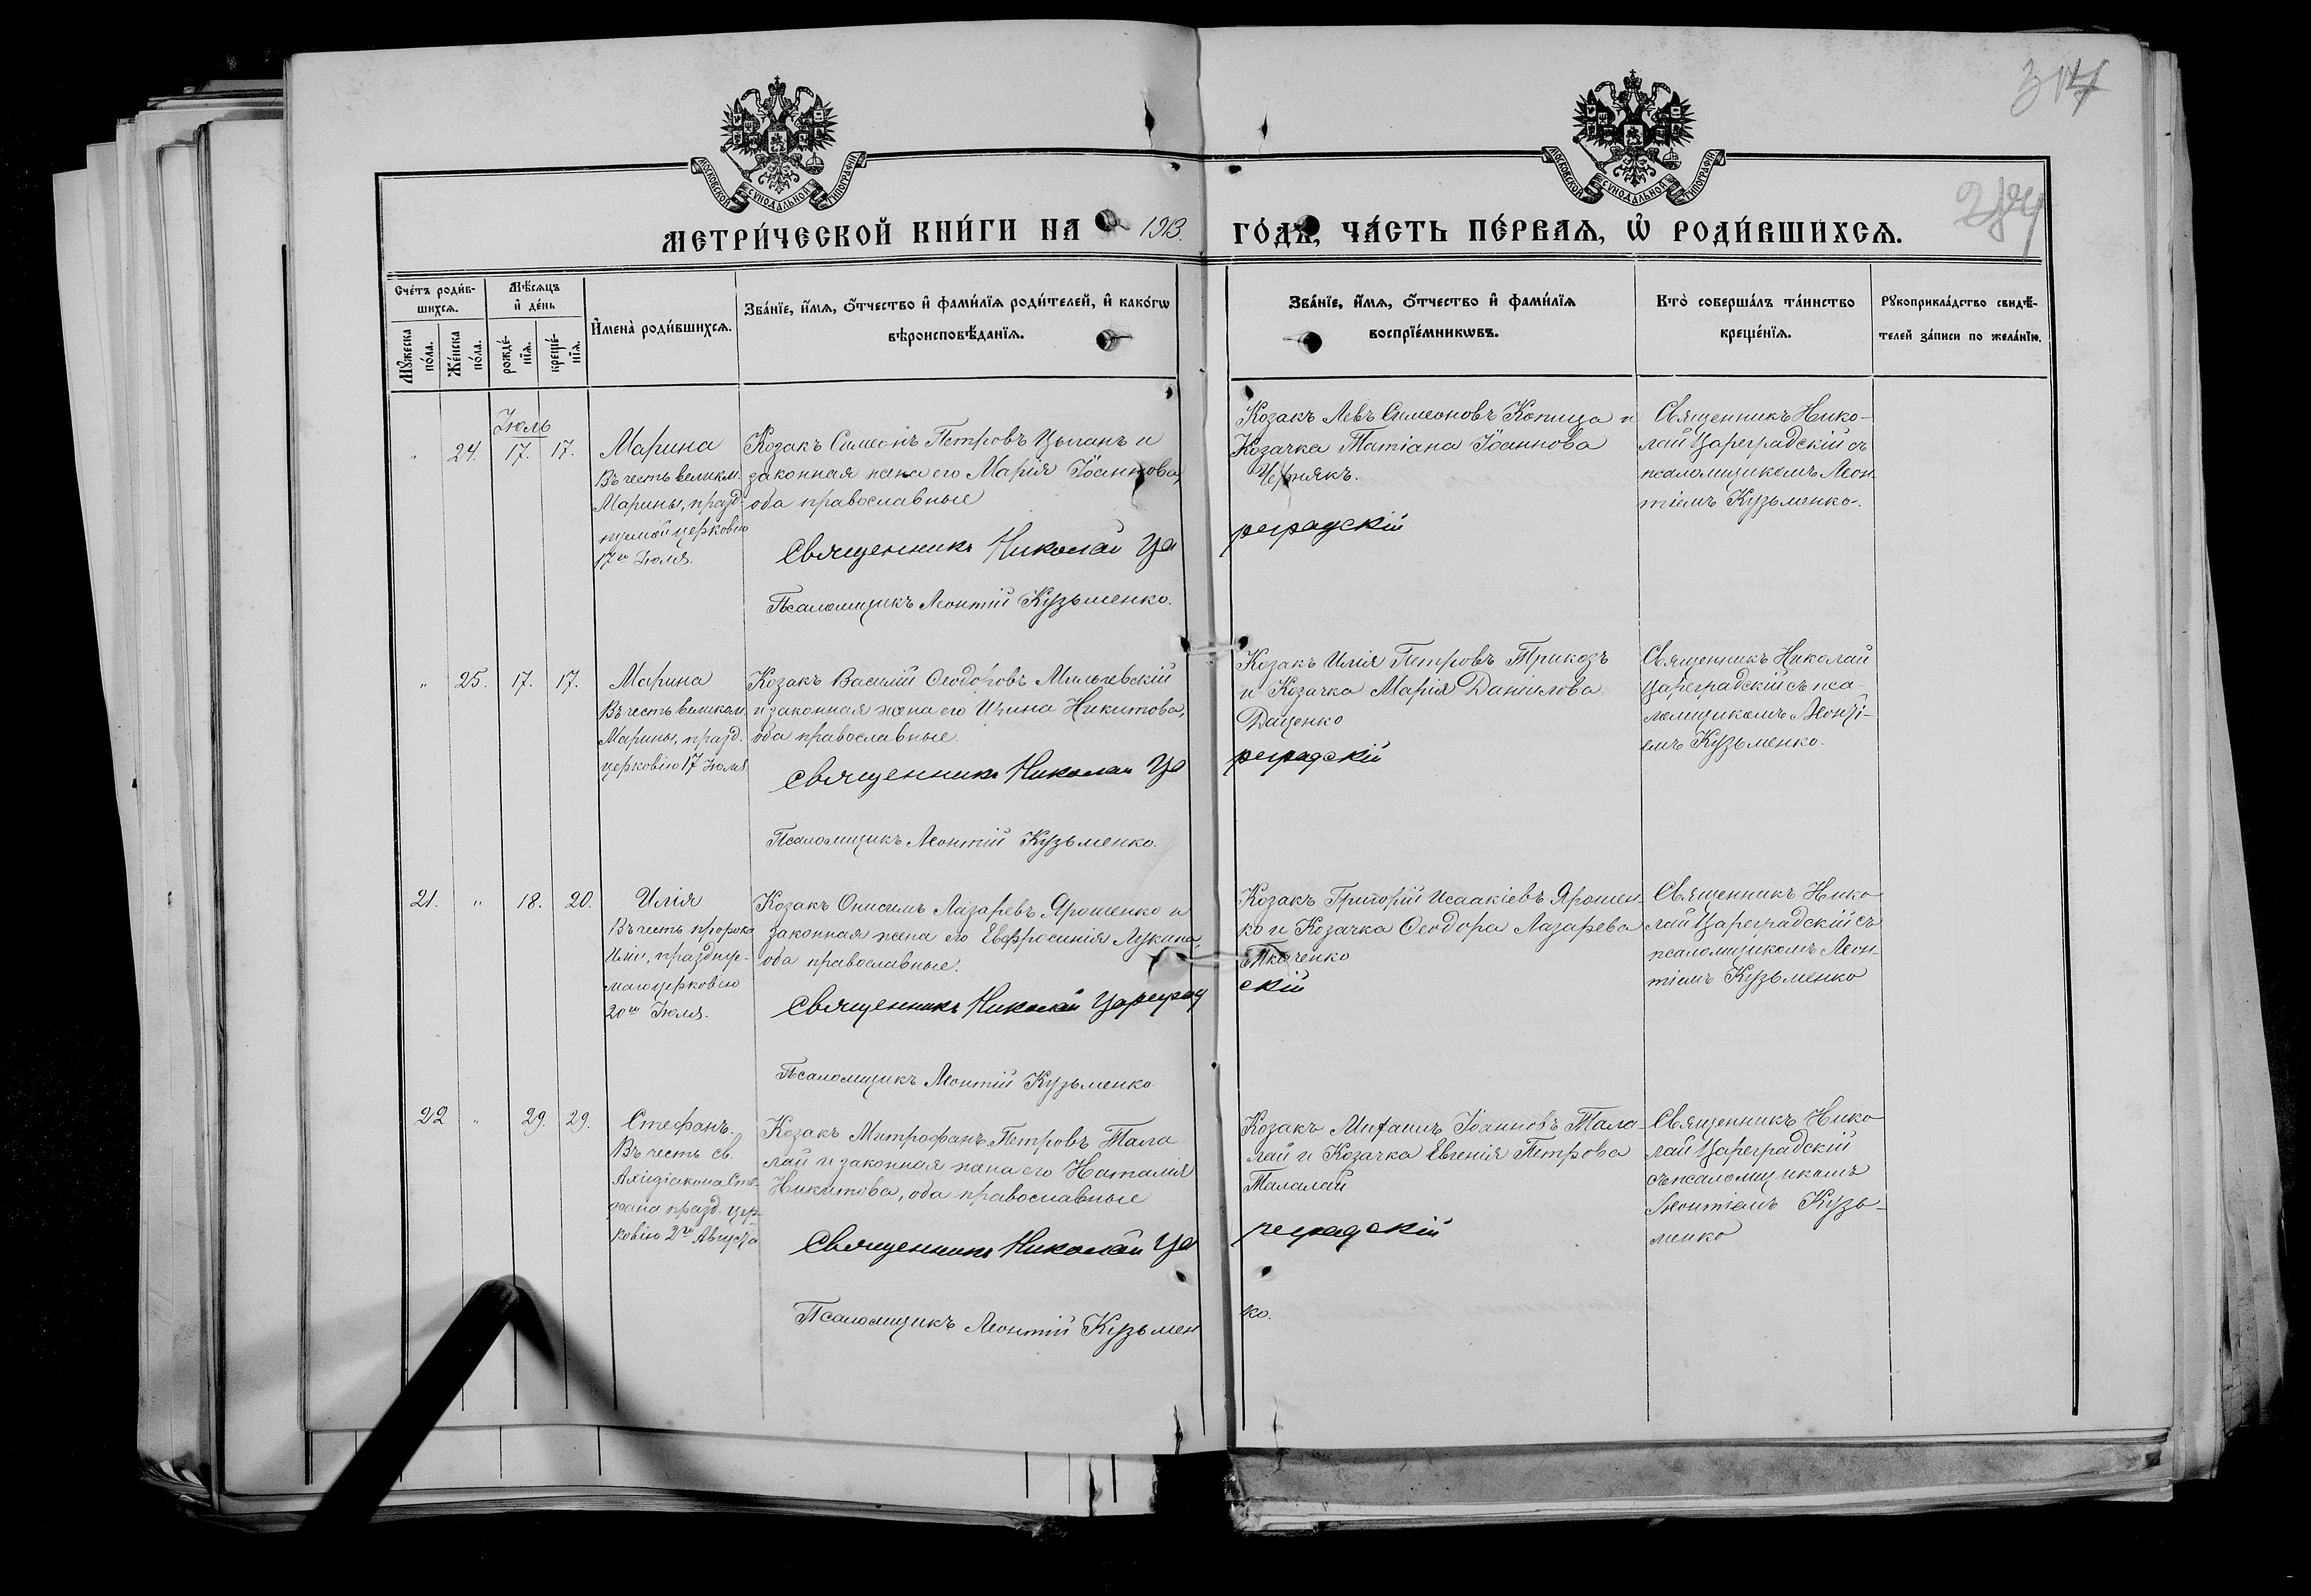 317
284
МОСКОВСКОЙ СУНОДАЛЬНОЙ ТИПОГРАФІИ
МОСКОВСКОЙ СУНОДАЛЬНОЙ ТИПОГРАФІИ
МЕТРИ́ЧЕСКОЙ КНИ́ГИ НА 1913. ГО́ДЪ, ЧА́СТЬ ПЕ́РВАѦ, Ѡ҆ РОДИ́ВШИХСѦ.
Сче́тъ роди́в-
шихсѧ.
Мꙋ́жеска по́ла.
Же́нска по́ла.
Мѣ́сѧцъ
и҆ де́нь
рожде́-
нїѧ.
креще́-
нїѧ.
И҆мена̀ роди́вшихсѧ.
Зва́нїе, и҆́мѧ, о҆́тчество и҆ фами́лїѧ роди́телей, и҆ како́гѡ
вѣроисповѣ́данїѧ.
Зва́нїе, и҆́мѧ, о҆́тчество и҆ фами́лїѧ
воспрїе́мникѡвъ.
Кто̀ соверша́лъ та́инство
креще́нїѧ.
Рꙋкоприкла́дство свидѣ́-
телей за́писи по жела́нїю.
Іюль
" 24. 17. 17.
Марина
Въ честь великм.
Марины, празд-
нуемой церковію
17го Іюля.
Козакъ Симеонъ Петровъ Цыганъ и
законная жена его Марія Іоаннова,
оба православные
Священникъ Николай Цареградскій
Псаломщикъ Леонтій Кузьменко.
Козакъ Левъ Симеоновъ Копица и
Козачка Татіана Іоаннова
Чернякъ.
Священникъ Нико-
лай Цареградскій съ
псаломщикомъ Леон-
тіемъ Кузьменко.
" 25. 17. 17.
Марина
Въ честь великом.
Марины, празд.
церковію 17 Іюля
Козакъ Василій Ѳеодоровъ Мильчевскій
и законная жена его Ирина Никитова,
оба православные.
Священникъ Николай Цареградскій
Псаломщикъ Леонтій Кузьменко.
Козакъ Илія Петровъ Трикозъ
и Козачка Марія Даніилова
Даценко
Священникъ Николай
Цареградскій съ пса-
ломщикомъ Леонті-
емъ Кузьменко.
21. " 18. 20.
Илія
Въ честь пророка
Иліи, праздну-
маго церковію
20го Іюля.
Козакъ Онисимъ Лазаревъ Ярошенко и
законная жена его Евфросинія Лукина,
оба православные.
Священникъ Николай Цареградскій
Псаломщикъ Леонтій Кузьменко
Козакъ Григорій Исаакіевъ Ярошен-
ко и Козачка Ѳеодора Лазарева
Ткаченко
Священникъ Нико-
лай Цареградскій съ
псаломщикомъ Леон-
тіемъ Кузьменко
22 " 29. 29.
Стефанъ.
Въ честь св.
Архидіакона Сте-
фана празд. цер-
ковію 2го Августа
Козакъ Митрофанъ Петровъ Тала
лай и законная жена его Наталія
Никитова, оба православные
Священникъ Николай Цареградскій
Псаломщикъ Леонтій Кузьменко.
Козакъ Михаилъ Іоанновъ Тала-
лай и Козачка Евгенія Петрова
Талалай
Священникъ Нико
лай Цареградскій
съ псаломщикомъ
Леонтіемъ Кузь-
менко